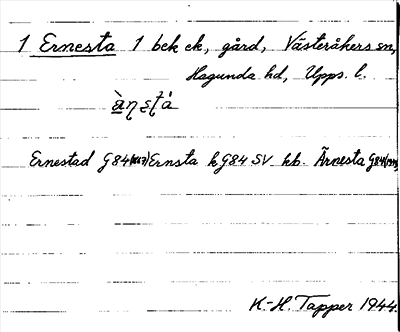 1 Ernesta 1 bek ek, gård, Västeråkers sn,
Hagunda hd, Upps. l.
àṇsta
Ernestad G84 Ernsta kG84 SV kb. Ärnesta G84
K.-H. Tapper 1944.